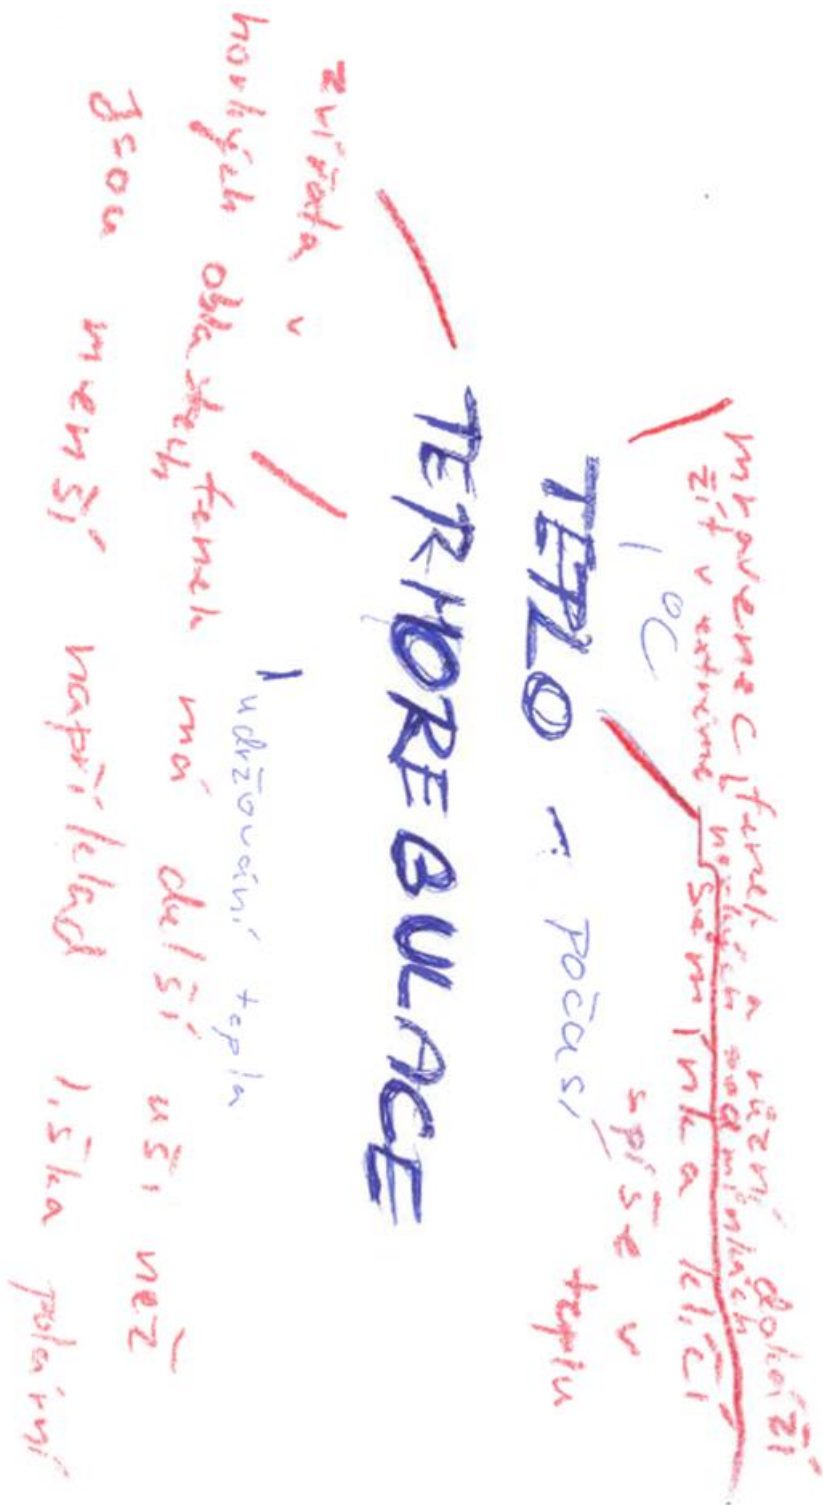 mravenec, fenek a různí dokáží
žít v extrémně horkých podmínkách
semínka klíčí
spíše v
teplu
°C
TEPLO - počasí
TERMOREGULACE
udržování tepla
zvířata v
horkých oblastech, fenek má delší uši než
Jsou menší například liška polární